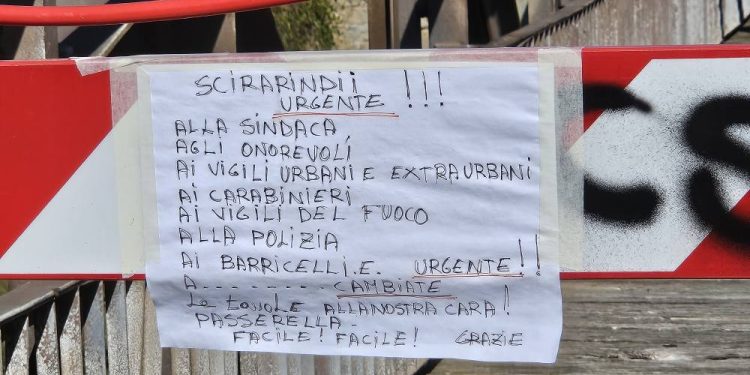 SCIRARINDII !!!
URGENTE
ALLA SINDACA
AGLI ONOREVOLI
Ai VIGILI URBANI E EXTRAURBANI
Ai CARABINIERI
Ai VIGILI DEL FUOCO
ALLA POLIZIA
Ai BARRICELLI.E. URGENTE!!
A........ CAMBIATE
Le tavole ALLA NOSTRA CARA!
PASSERELLA.
FACILE! FACILE! GRAZIE
CS